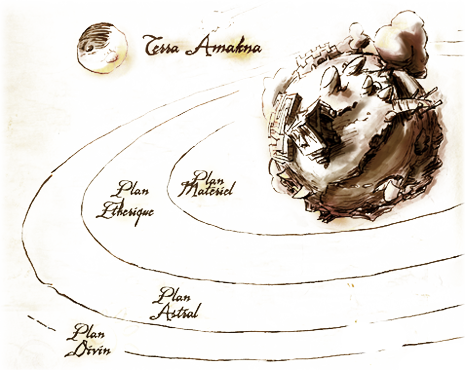 Terra Amakna
Plan
Matériel
Plan
Etherique
Plan
Astral
Plan
Divin